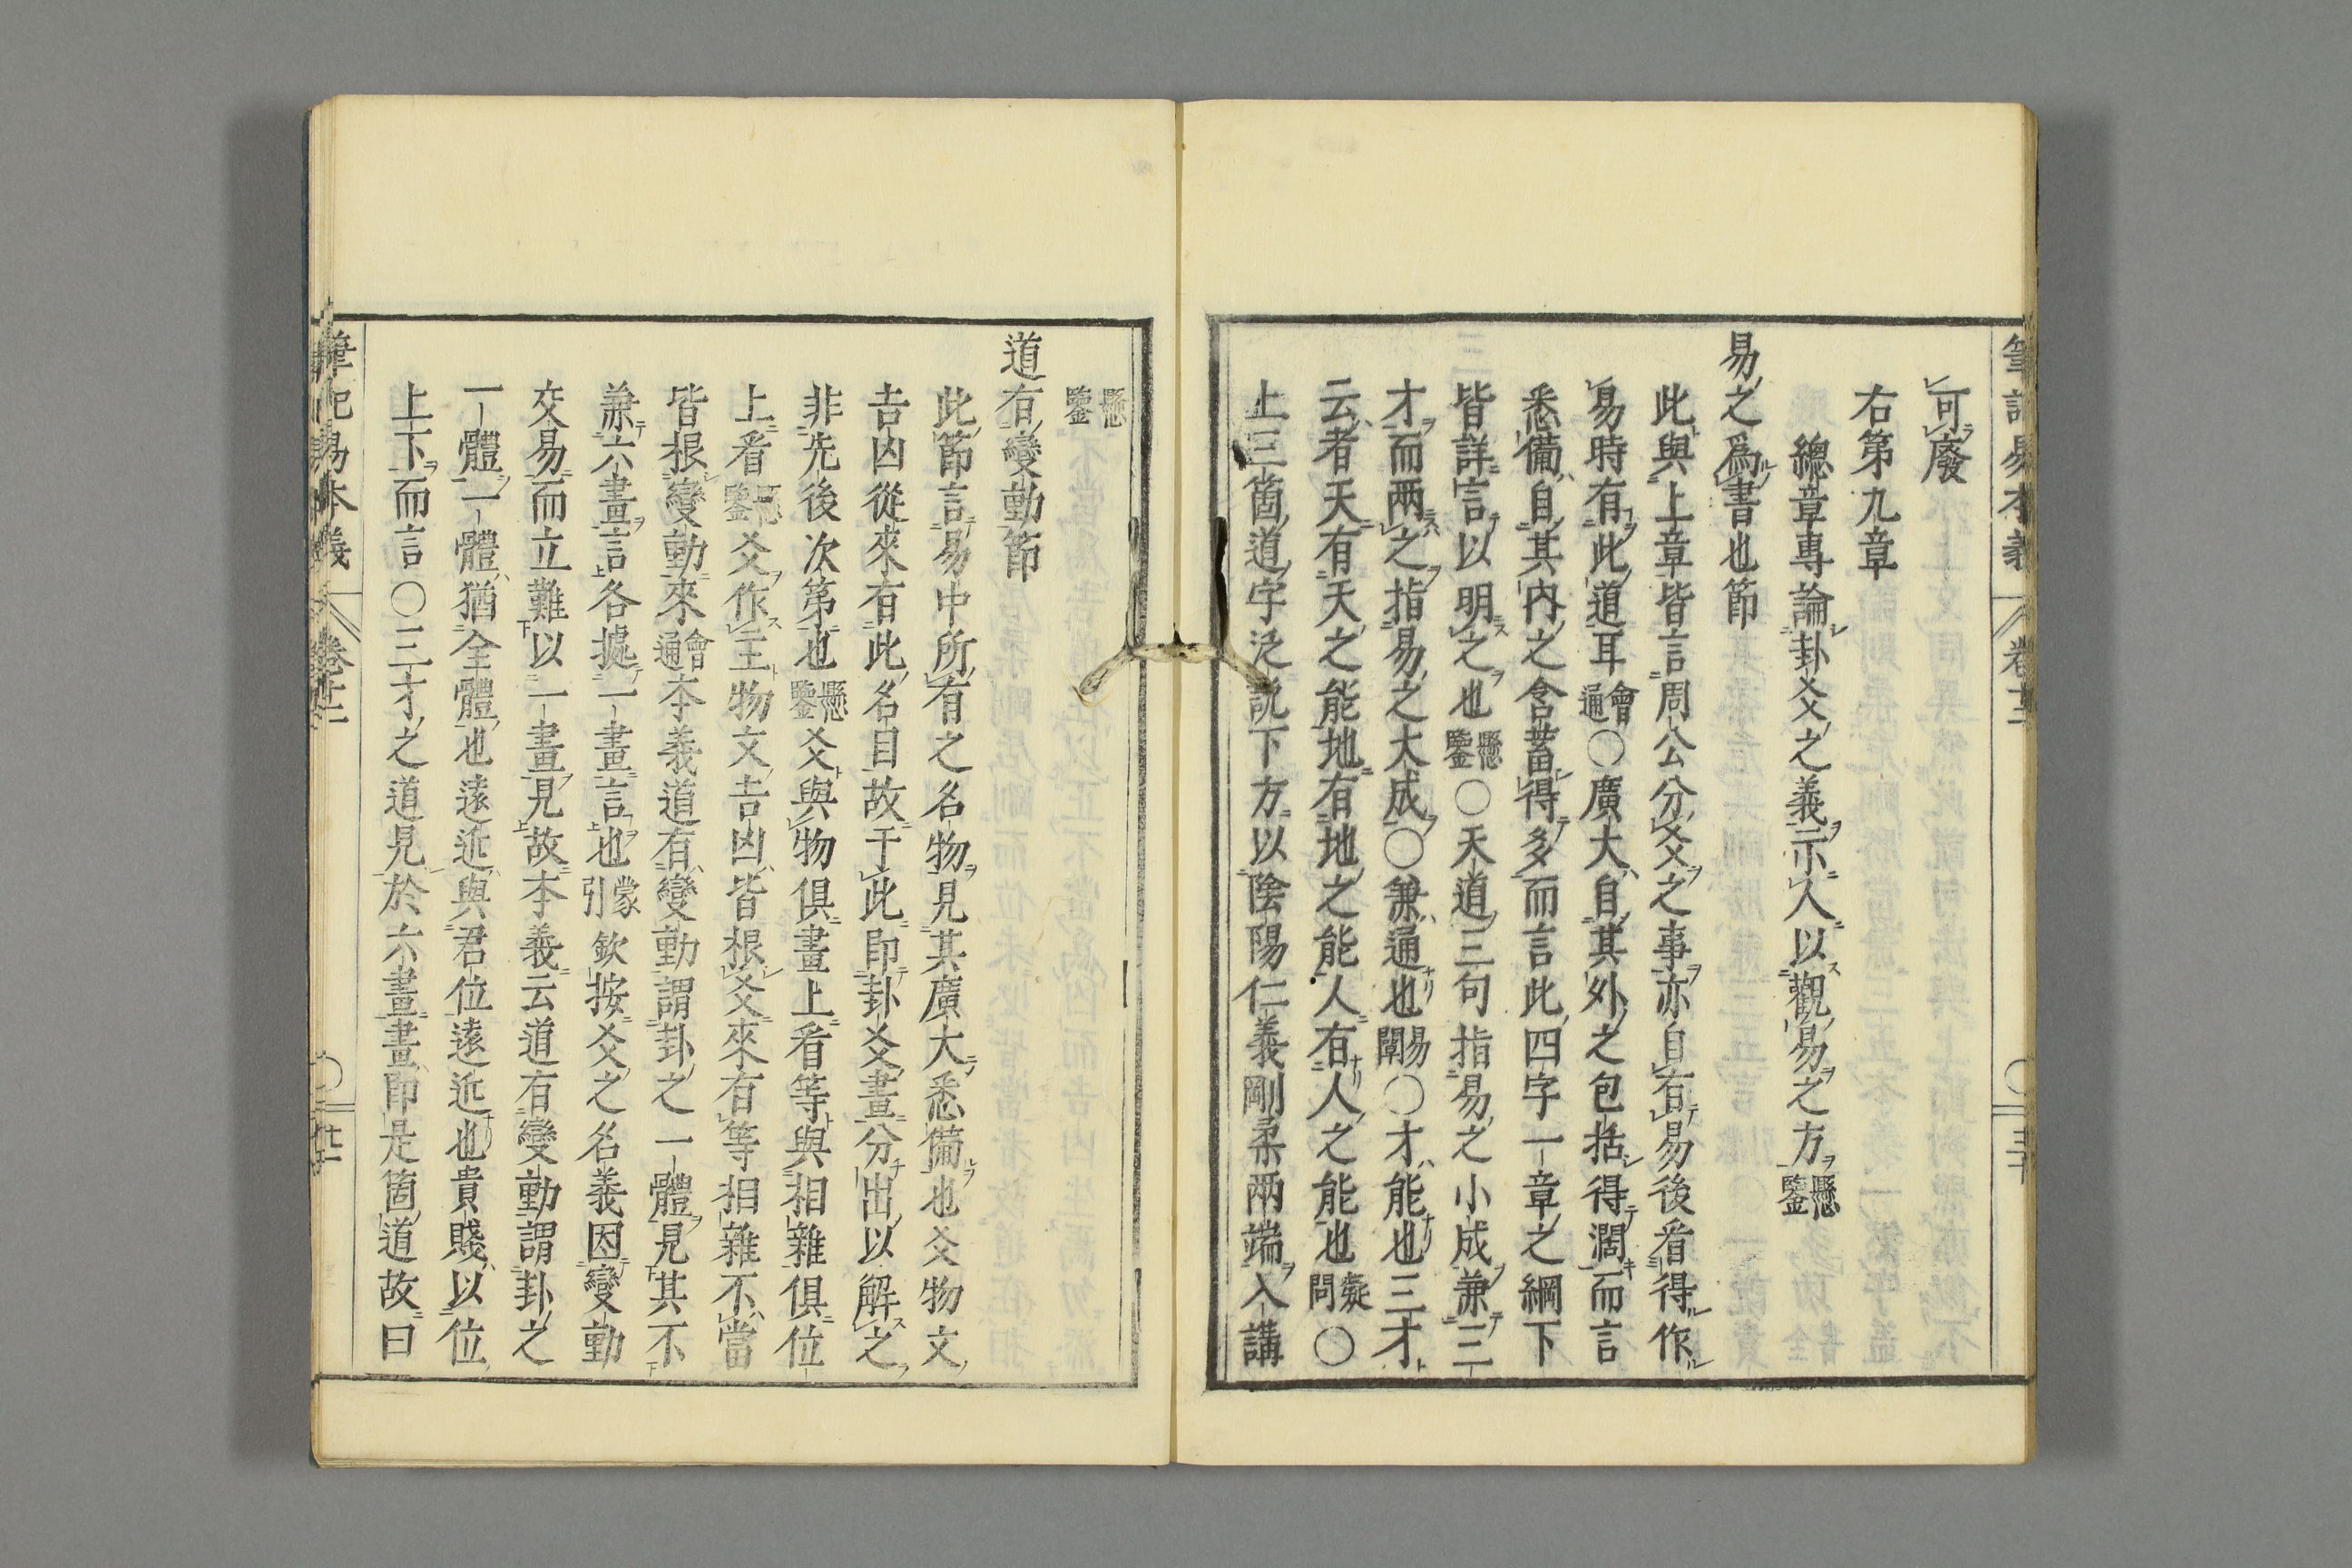 可廢
右第九章
總章專論卦爻之義示人以觀易之方懸鑒
易之爲書也節
此與上章皆言周公分爻之事亦自有易後看得作
易時有此道耳會通〇廣大自其外之包括得濶而言
悉備自其内之含蓄得多而言此四字一章之綱下
皆詳言以明之也懸鑒〇天道三句指易之小成兼三
才而兩之指易之大成〇兼通也易闡〇才能也三才
云者天有天之能地有地之能人有人之能也疑問〇
上三箇道字泛説下方以陰陽仁義剛柔兩端入講
懸鑒
道有變動節
此節言易中所有之名物見其廣大悉備也爻物文
吉凶從來有此名目故于此即卦爻畫分出以解之
非先後次第也懸鑒爻與物俱畫上看等與相雜俱位
上看懸鑒爻作主物文吉凶皆根爻來有等相雜不當
皆根變動來會通本義道有變動謂卦之一體見其不
兼六畫言各據一畫言也蒙引欽按爻之名義因變動
交易而立難以一畫見故本義云道有變動謂卦之
一體一體猶全體也遠近與君位遠近也貴賤以位
上下而言〇三才之道見於六畫畫即是箇道故曰